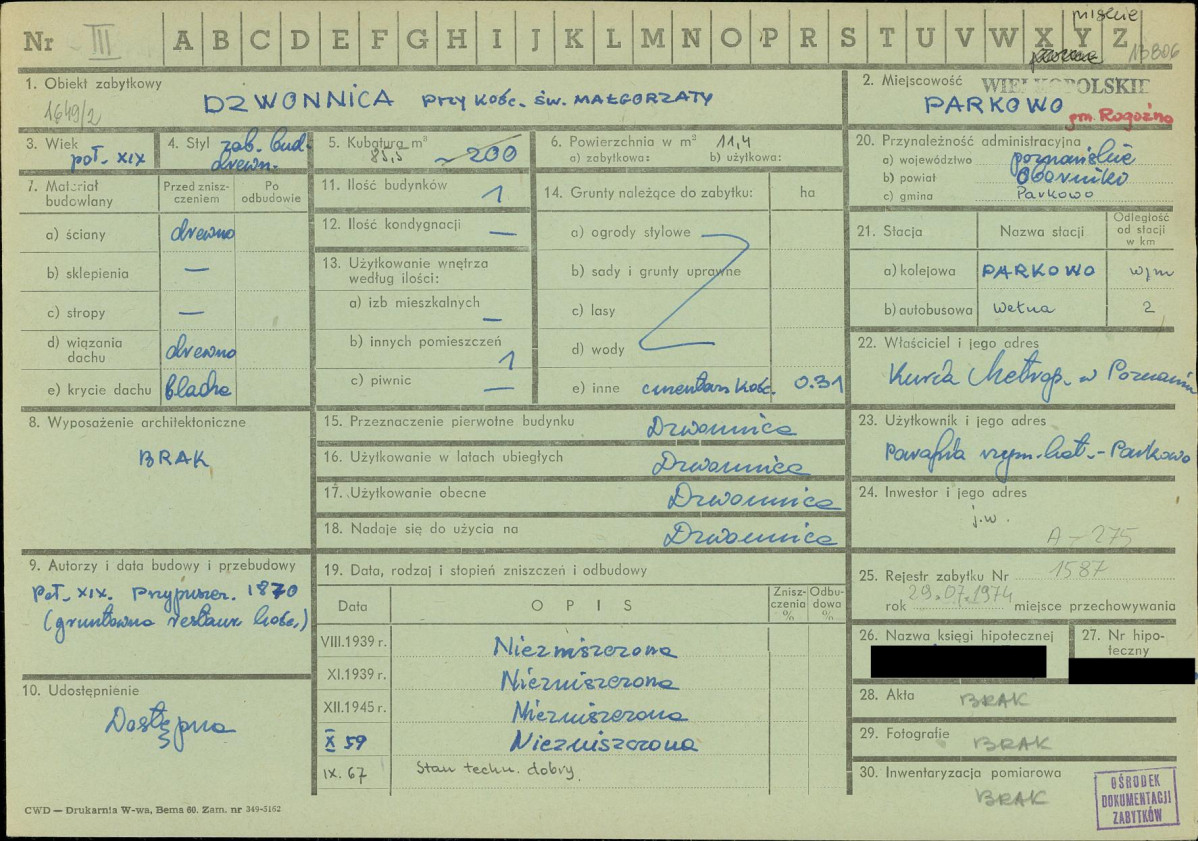 Nr III A B C D E F G H I J K L M N O P R S T U V W X Y Z
13806
1. Obiekt zabytkowy
1649/2
DZWONNICA PRZY KOŚC. ŚW. MAŁGORZATY
2. Miejscowość WIELKOPOLSKIE
PARKOWO gm. Rogoźno
3. Wiek
poł. XIX
4. Styl zab. bud. drewn.
5. Kubatura m³
83,5 ~200
6. Powierzchnia w m² 11,4
a) zabytkowa: b) użytkowa:
7. Materiał budowlany
Przed zniszczeniem
Po odbudowie
a) ściany drewno
b) sklepienia —
c) stropy —
d) wiązania dachu drewno
e) krycie dachu blacha
8. Wyposażenie architektoniczne
BRAK
9. Autorzy i data budowy i przebudowy
Poł. XIX. Przypuszcz. 1870
(gruntowna restaur. kośc.)
10. Udostępnienie
Dostępna
11. Ilość budynków 1
12. Ilość kondygnacji —
13. Użytkowanie wnętrza według ilości:
a) izb mieszkalnych —
b) innych pomieszczeń 1
c) piwnic —
14. Grunty należące do zabytku: ha
a) ogrody stylowe
b) sady i grunty uprawne
c) lasy
d) wody
e) inne cmentarz kośc. 0.31
15. Przeznaczenie pierwotne budynku Dzwonnica
16. Użytkowanie w latach ubiegłych Dzwonnica
17. Użytkowanie obecne Dzwonnica
18. Nadaje się do użycia na Dzwonnica
19. Data, rodzaj i stopień zniszczeń i odbudowy
Data OPIS Zniszczenia % Odbudowa %
VIII.1939 r. Niezniszczona
XI.1939 r. Niezniszczona
XII.1945 r. Niezniszczona
X 59 Niezniszczona
IX. 67 Stan techn. dobry
20. Przynależność administracyjna
a) województwo poznańskie
b) powiat Oborniki
c) gmina Parkowo
21. Stacja Nazwa stacji Odległość od stacji w km
a) kolejowa PARKOWO w/m
b) autobusowa Wełna 2
22. Właściciel i jego adres
Kuria Metrop. w Poznaniu
23. Użytkownik i jego adres
Parafia rzym. kat. - Parkowo
24. Inwestor i jego adres
j.w.
A-275
25. Rejestr zabytku Nr 1587
rok 29.07.1974 miejsce przechowywania
26. Nazwa księgi hipotecznej
27. Nr hipoteczny
28. Akta BRAK
29. Fotografie BRAK
30. Inwentaryzacja pomiarowa
BRAK
OŚRODEK
DOKUMENTACJI
ZABYTKÓW
CWD — Drukarnia W-wa, Bema 60. Zam. nr 349-5162